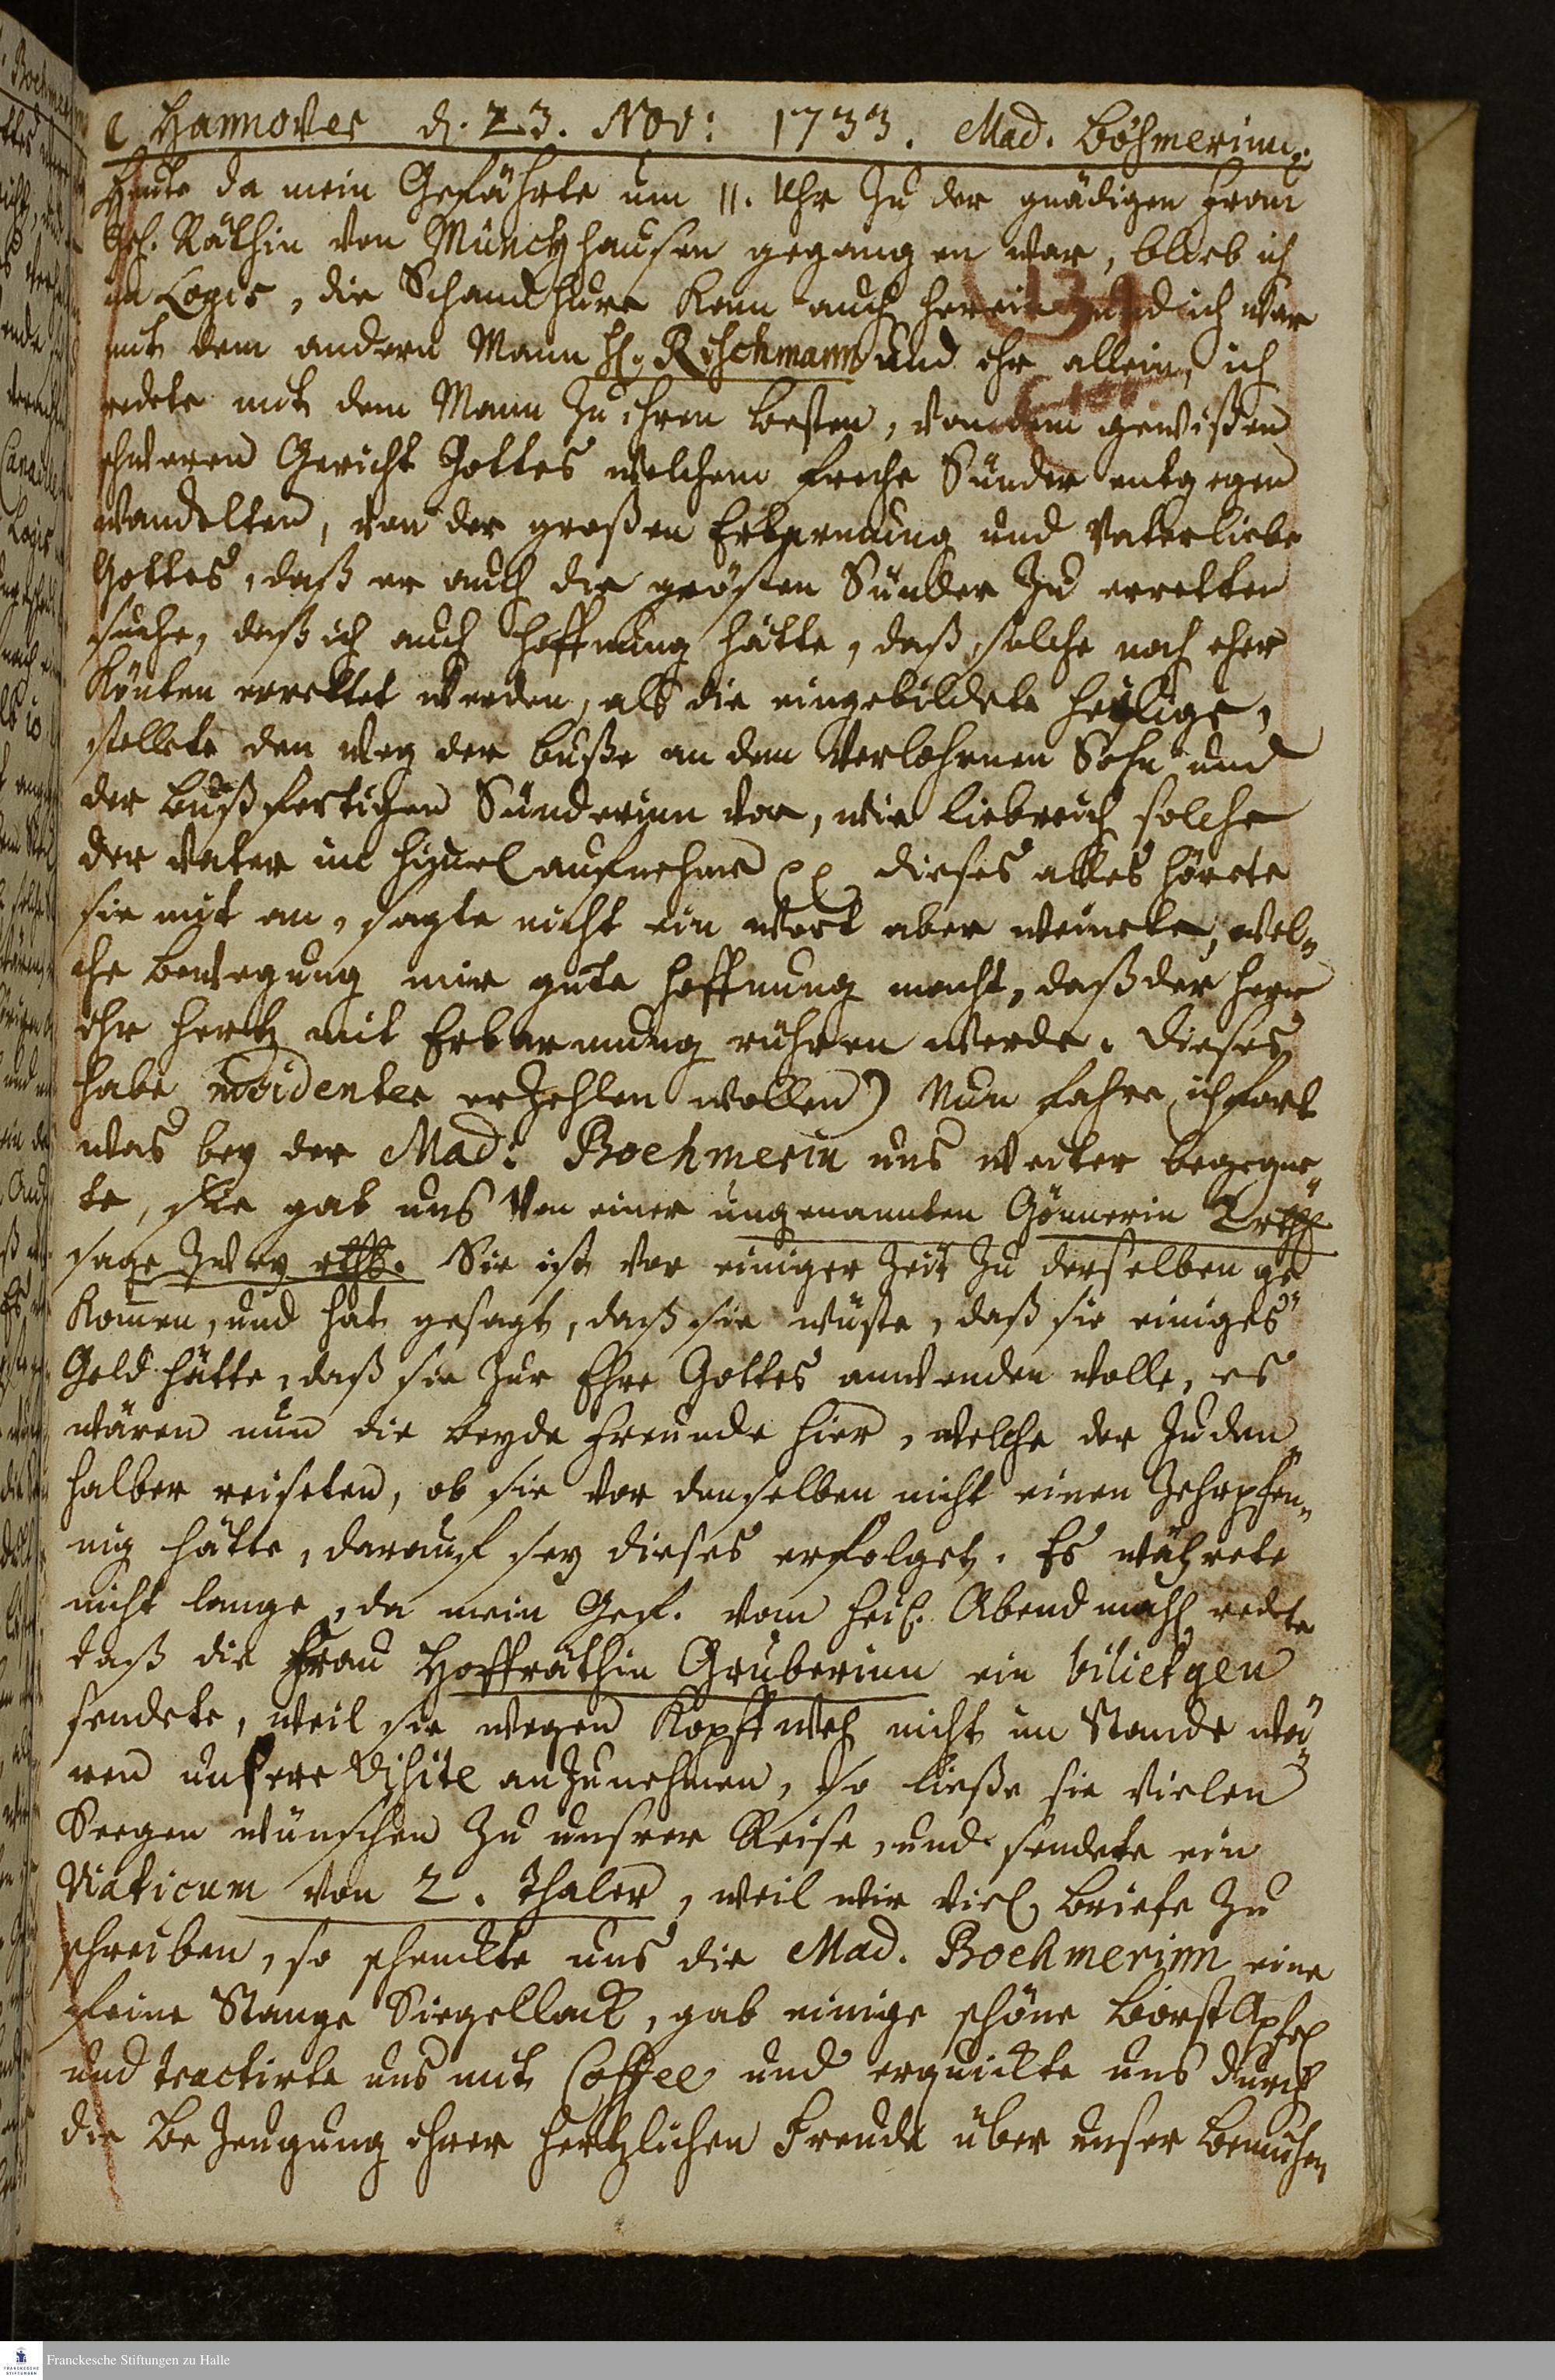 Hannover d. 23. Nov: 1733. Mad. Böhmerinn.
Heute da mein Gefährte um 11. Uhr zu der gnädigen Frau
Geh. Räthin von Münchhausen gegangen war, blieb ich
im Logis, die Schandhure kam auch herein und ich war
mit dem andern Mann H. Reschmann und ihr allein, ich
redete mit dem Mann zu ihren besten, von dem gewißen
schweren Gericht Gottes welchem freche Sünder entgegen
wandelten, von der großen Erbarmung und Vaterliebe
Gottes, daß er auch die grösten Sünder zu erretten
suche, daß ich auch Hoffnung hätte, daß solche noch eher
könten errettet werden, als die eingebildete heylige,
stellete den Weg der Buße an dem Verlohrnen Sohn und
der bußfertigen Sünderinn vor, wie liebreich solche
der Vater im Himel aufnehme pp dieses alles hörete
sie mit an, sagte nicht ein Wort aber weinete, wel-
che bewegung mir gute Hoffnung macht, daß der Herr
ihr Hertz mit Erbarmung rühren werde. Dieses
habe incidenter erzehlen wollen) Nun fahre ich fort
was bey der Mad: Boehmerin uns weiter begegne-
te, sie gab uns von einer ungenannten Gönnerin 2 rthl
sage zwey rthl. Sie ist vor einiger Zeit zu derselben ge-
komen, und hat gesagt, daß sie wüste, daß sie einiges
Geld hätte, daß sie zur Ehre Gottes anwenden wolle, es
wären nun die beyde Freunde hier, welche der Juden
halber reiseten, ob sie vor denselben nicht einen Zehrpfen-
nig hätte, darauf sey dieses erfolget. Es währete
nicht lange, da mein Gef. vom heil. Abendmahl redete
daß die Frau Hoffräthin Gruberinn ein bilietgen
sendete, weil sie wegen Kopffweh nicht im Stande wä-
ren unsere Visite anzunehmen, so ließe sie vielen
Seegen wünschen zu unsrer Reise, und sendete ein
Viaticum von 2. Thaler, weil wir viel Briefe zu
schreiben, so schenckte uns die Mad. Boehmerinn eine
feine Stange Siegellack, gab einige schöne BorstApfel
und tractirte uns mit Coffee und erquickte uns durch
die Bezeugung ihrer hertzlichen Freude über unser
Franckesche Stiftungen zu Halle